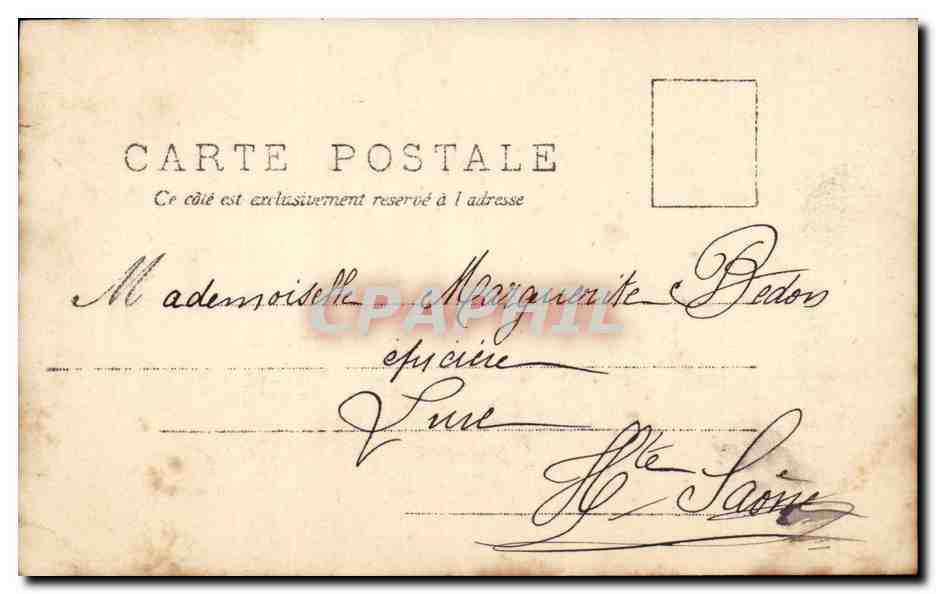 CARTE POSTALE
Ce côté est exclusivement reservé à l adresse
Mademoiselle Marguerite Bedon
CPAPHIL
épicière
Lure
Hte Saône